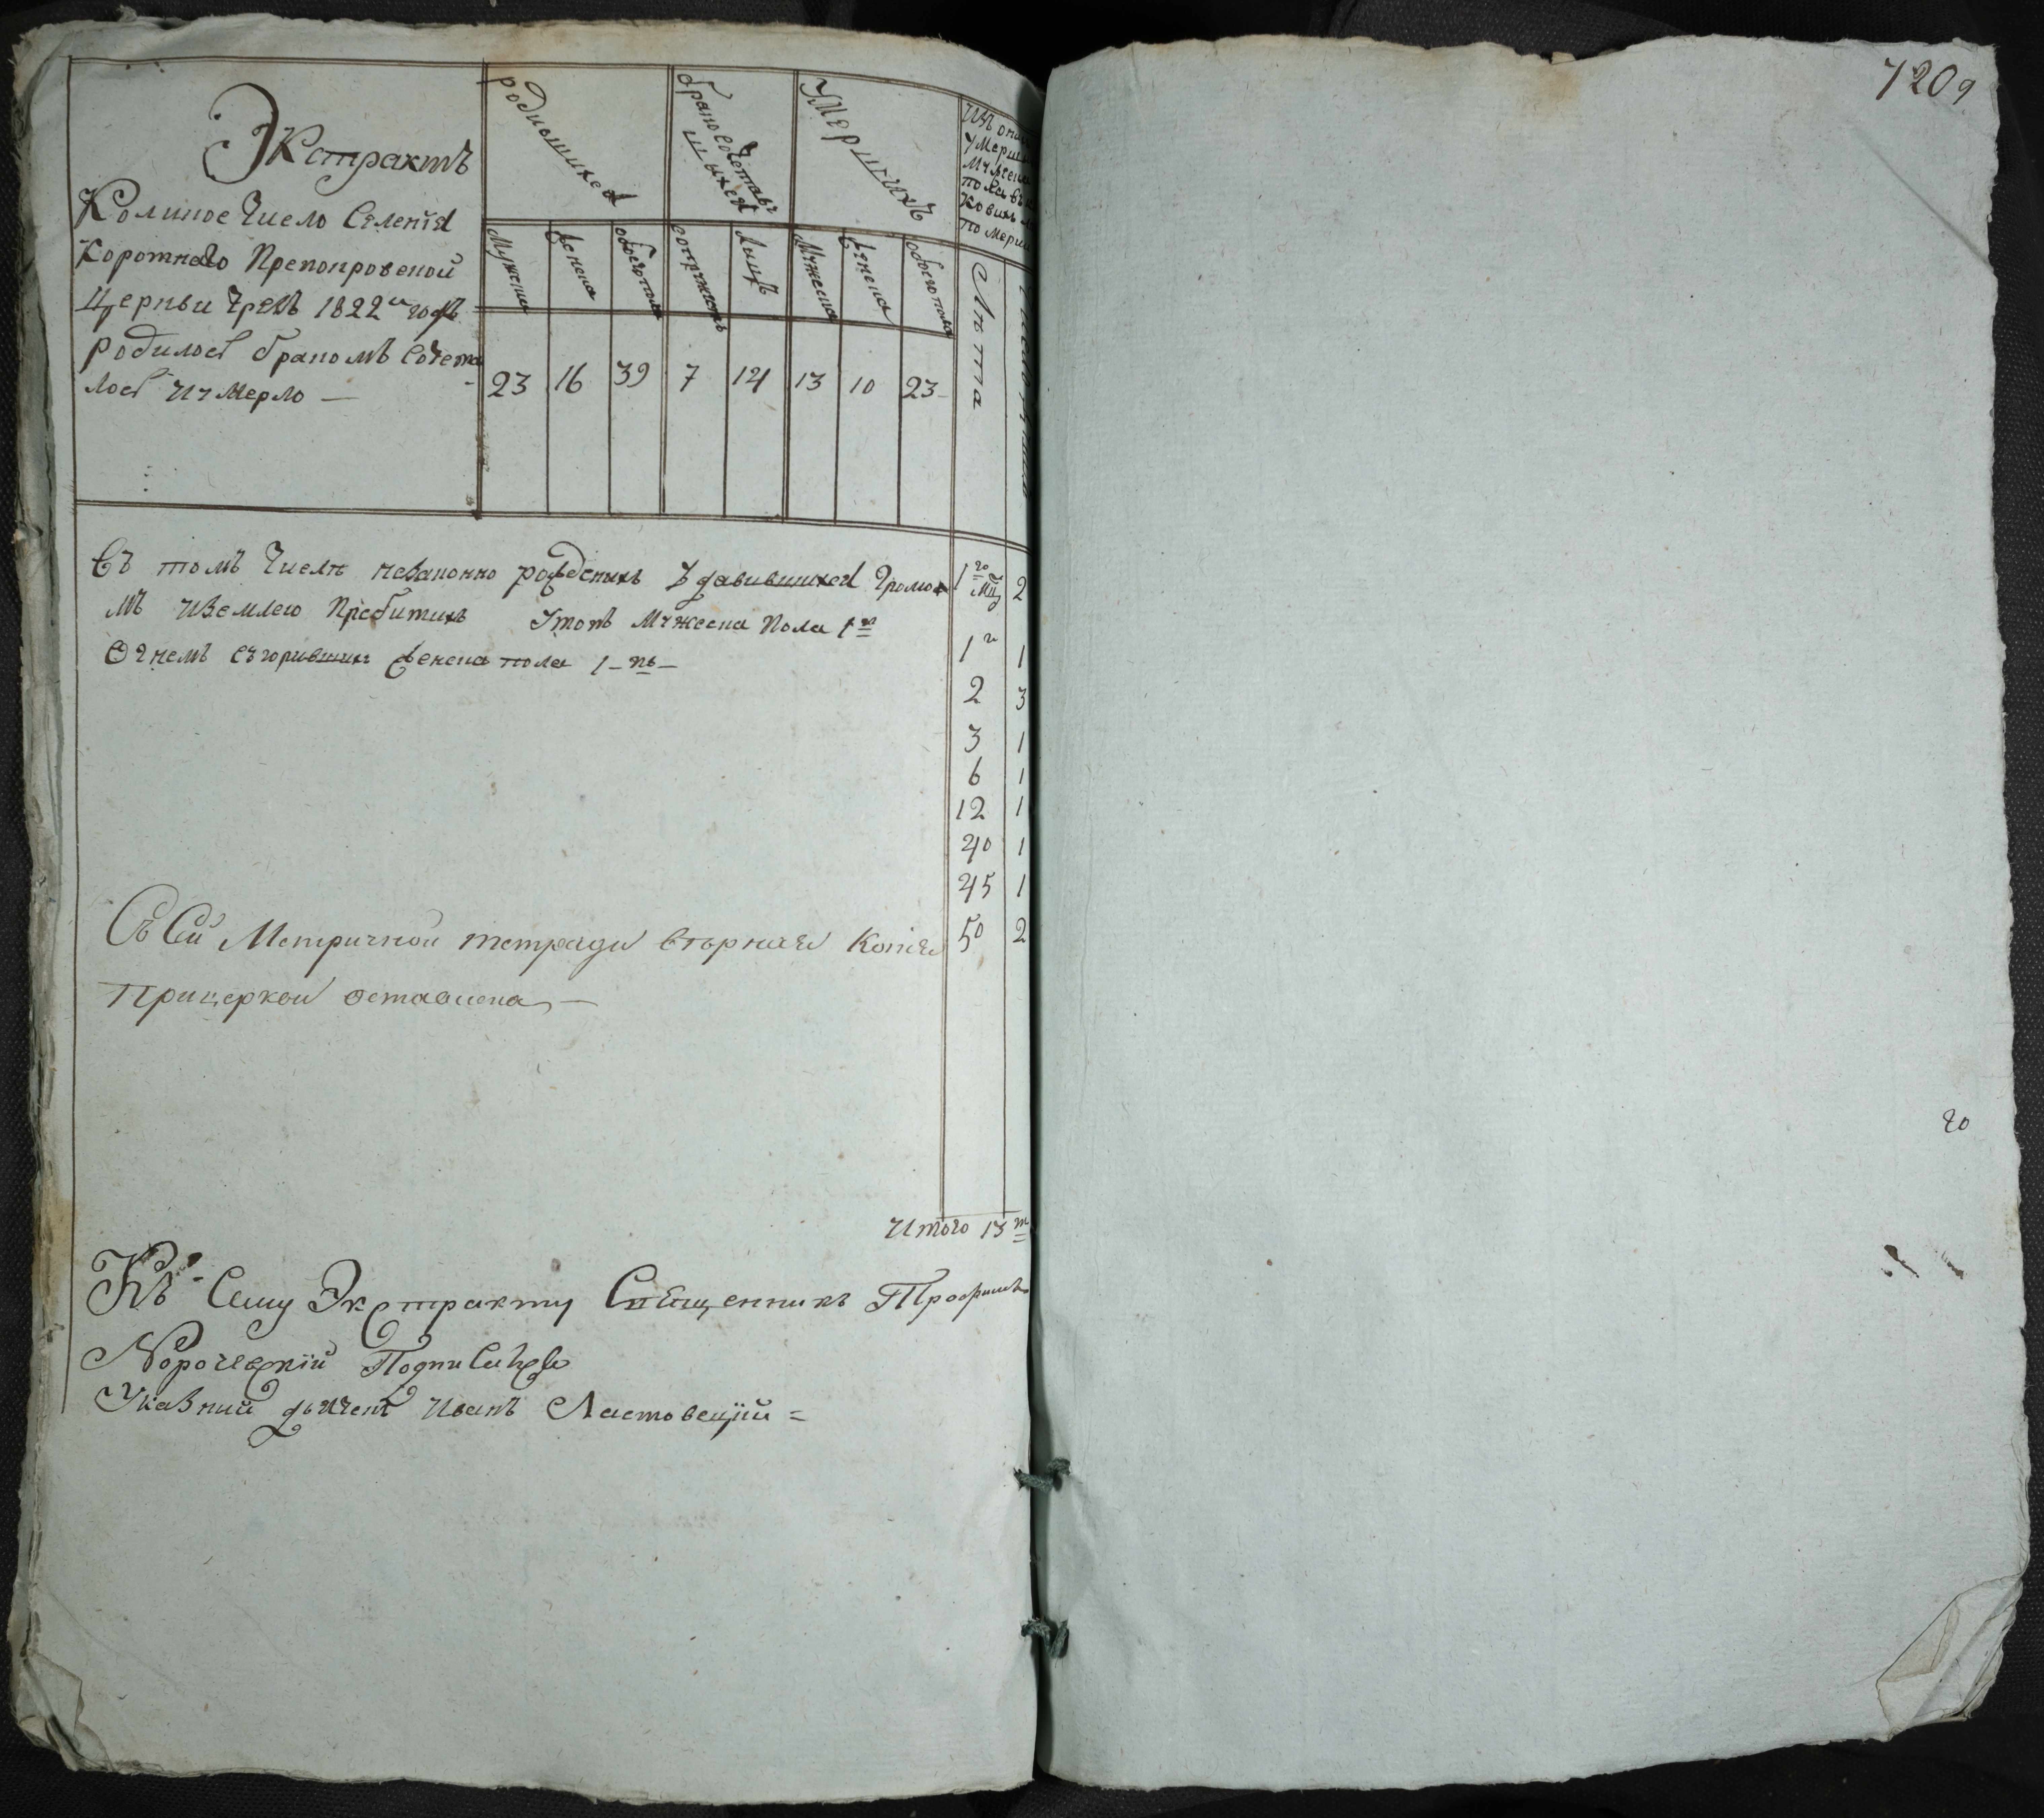 Экстрактъ
Коликое число Селенія
Коротнаго Препопровеной
Церкви чрезъ 1822й годъ
родилось бракомъ сочета
лось и умерло —
родившихся
бракосочетав
шихся
Умершихъ
умерши
мужеска
пола въ
по мерли
мужеска
женска
обоего пола
супружествъ
лицъ
мужеска
женска
обоего пола
Лѣта
23 16 39 7 14 13 10 23
Въ томъ числѣ незаконно рожденихъ Удавившихся Громо
мъ и землею Пребитихъ Утопъ Мужеска пола 1нъ
Огнемъ сгоривших женска пола 1 на
1го мц 2
1г 1
2 3
3 1
6 1
12 1
40 1
45 1
50 2
Съ Сей Метричной тетради вѣрная Копія
При церкви оставлена —
Итого 13 т
Къ Сему Экстракту Священникъ Трофимъ
Подписался
Указний дьячекъ Иванъ Ластовецкїй =
1209
20